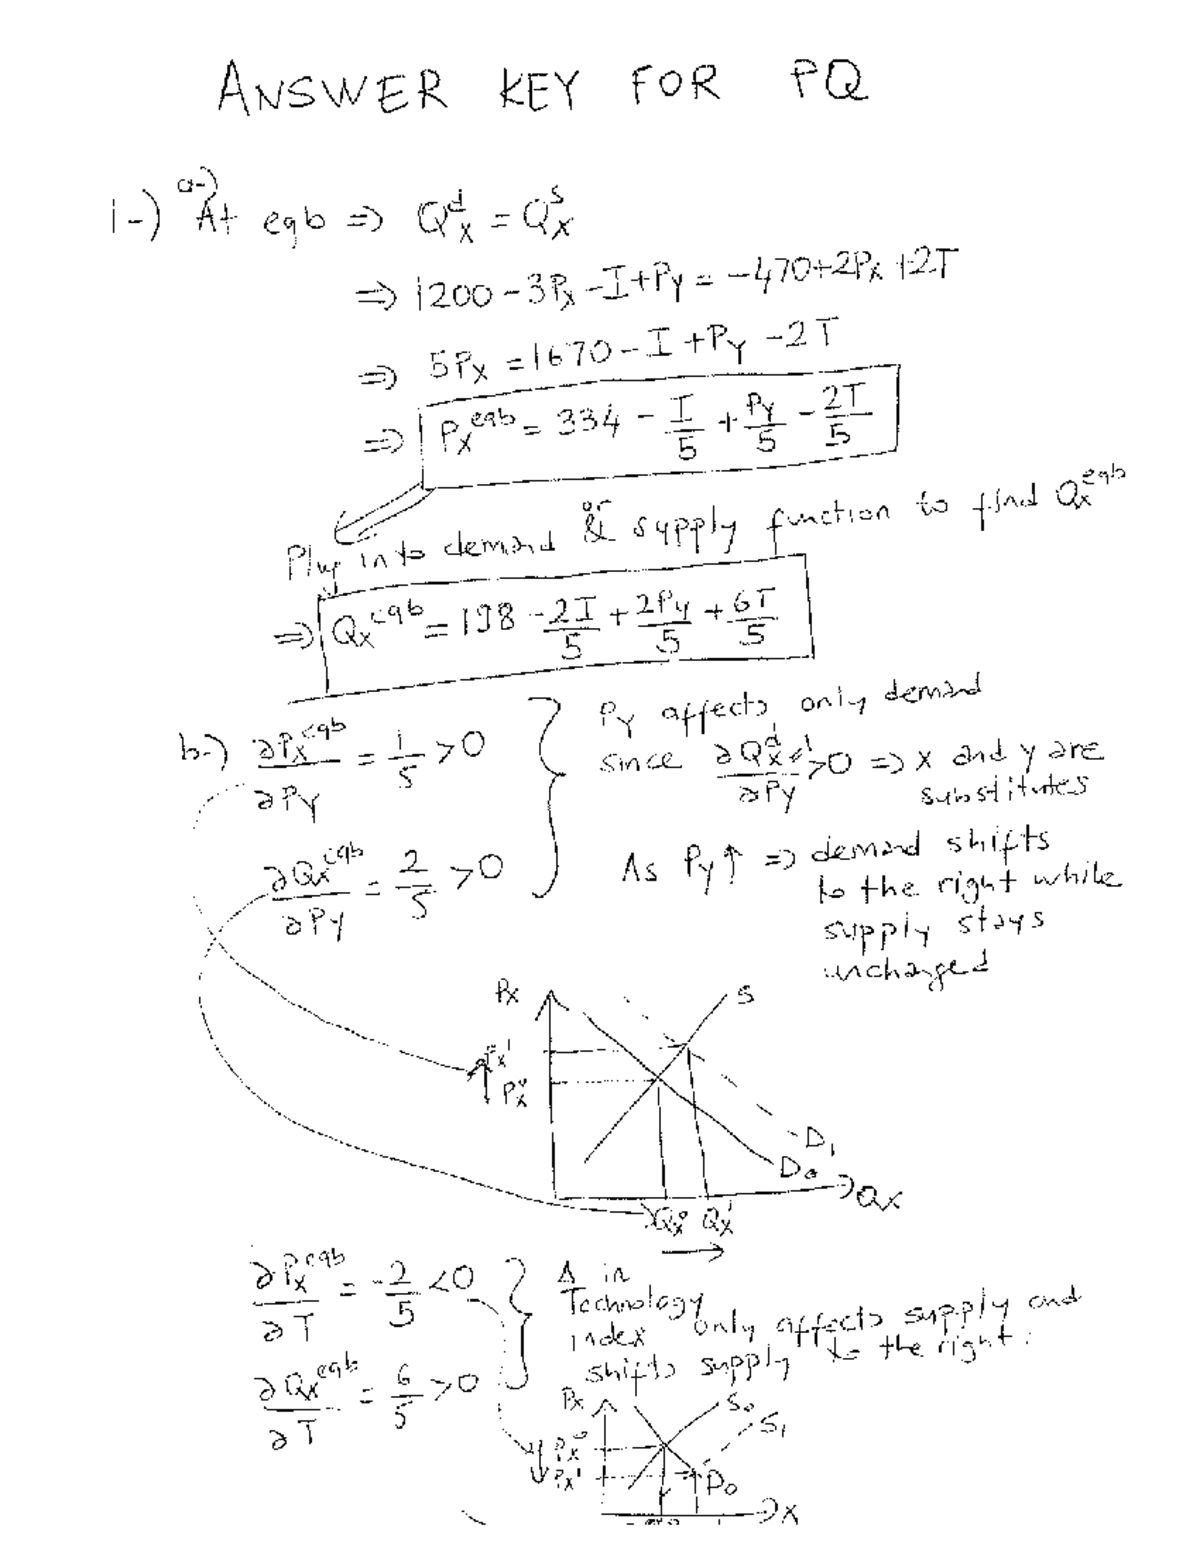 ANSWER KEY FOR PQ
1-) a-) At eqb ⇒ Q^d_X = Q^s_X
⇒ 1200 - 3P_X - I + P_Y = -470 + 2P_X + 2T
⇒ 5P_X = 1670 - I + P_Y - 2T
⇒ P_X^eqb = 334 - I/5 + P_Y/5 - 2T/5
Plug into demand & or supply function to find Q_X^eqb
⇒ Q_X^eqb = 198 - 2I/5 + 2P_Y/5 + 6T/5
b-) ∂P_X^eqb/∂P_Y = 1/5 > 0
∂Q_X^eqb/∂P_Y = 2/5 > 0
P_Y affects only demand
since ∂Q_X^d/∂P_Y = 1 > 0 ⇒ X and Y are
substitutes
As P_Y ↑ ⇒ demand shifts
to the right while
supply stays
unchanged
P_X
S
P_X^1
P_X^0
D_1
D_0
Q_X
Q_X^0 Q_X^1
∂P_X^eqb/∂T = -2/5 < 0
∂Q_X^eqb/∂T = 6/5 > 0
Δ in
Technology
index only affects supply and
shifts supply to the right:
P_X
S_0
S_1
P_X^0
P_X^1
D_0
X